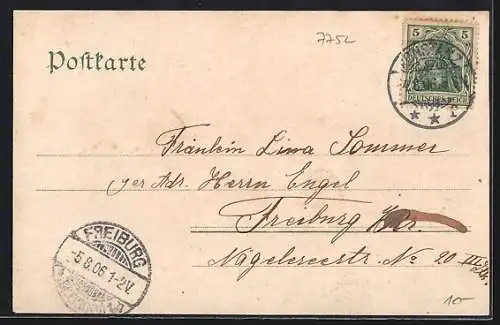 7752
Postkarte
5 5
DEUTSCHES REICH
Fräulein Lina Sommer
per Adr. Herrn Engel
Freiburg
Nägeleseestr. No 20 III
FREIBURG
-5.8.06.1-2V.
10-